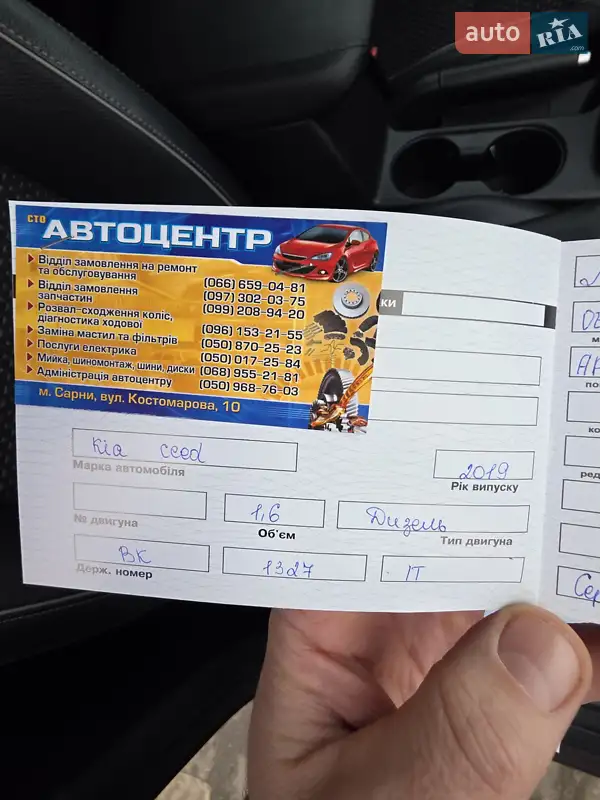 auto RIA.com
СТО
АВТОЦЕНТР
Відділ замовлення на ремонт
та обслуговування
(066) 659-04-81
Відділ замовлення
запчастин
(097) 302-03-75
(099) 208-94-20
Розвал-сходження коліс,
діагностика ходової
(096) 153-21-55
Заміна мастил та фільтрів
(050) 870-25-23
Послуги електрика
(050) 017-25-84
Мийка, шиномонтаж, шини, диски (068) 955-21-81
Адміністрація автоцентру (050) 968-76-03
м. Сарни, вул. Костомарова, 10
ки
Kia ceed
Марка автомобіля
2019
Рік випуску
№ двигуна
1,6
Об'єм
Дизель
Тип двигуна
ВК
1327
ІТ
Держ. номер